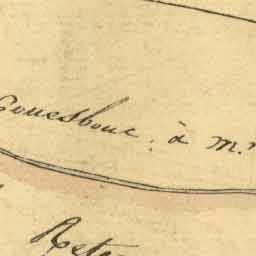 Gouesbouc. à m.r
Rete